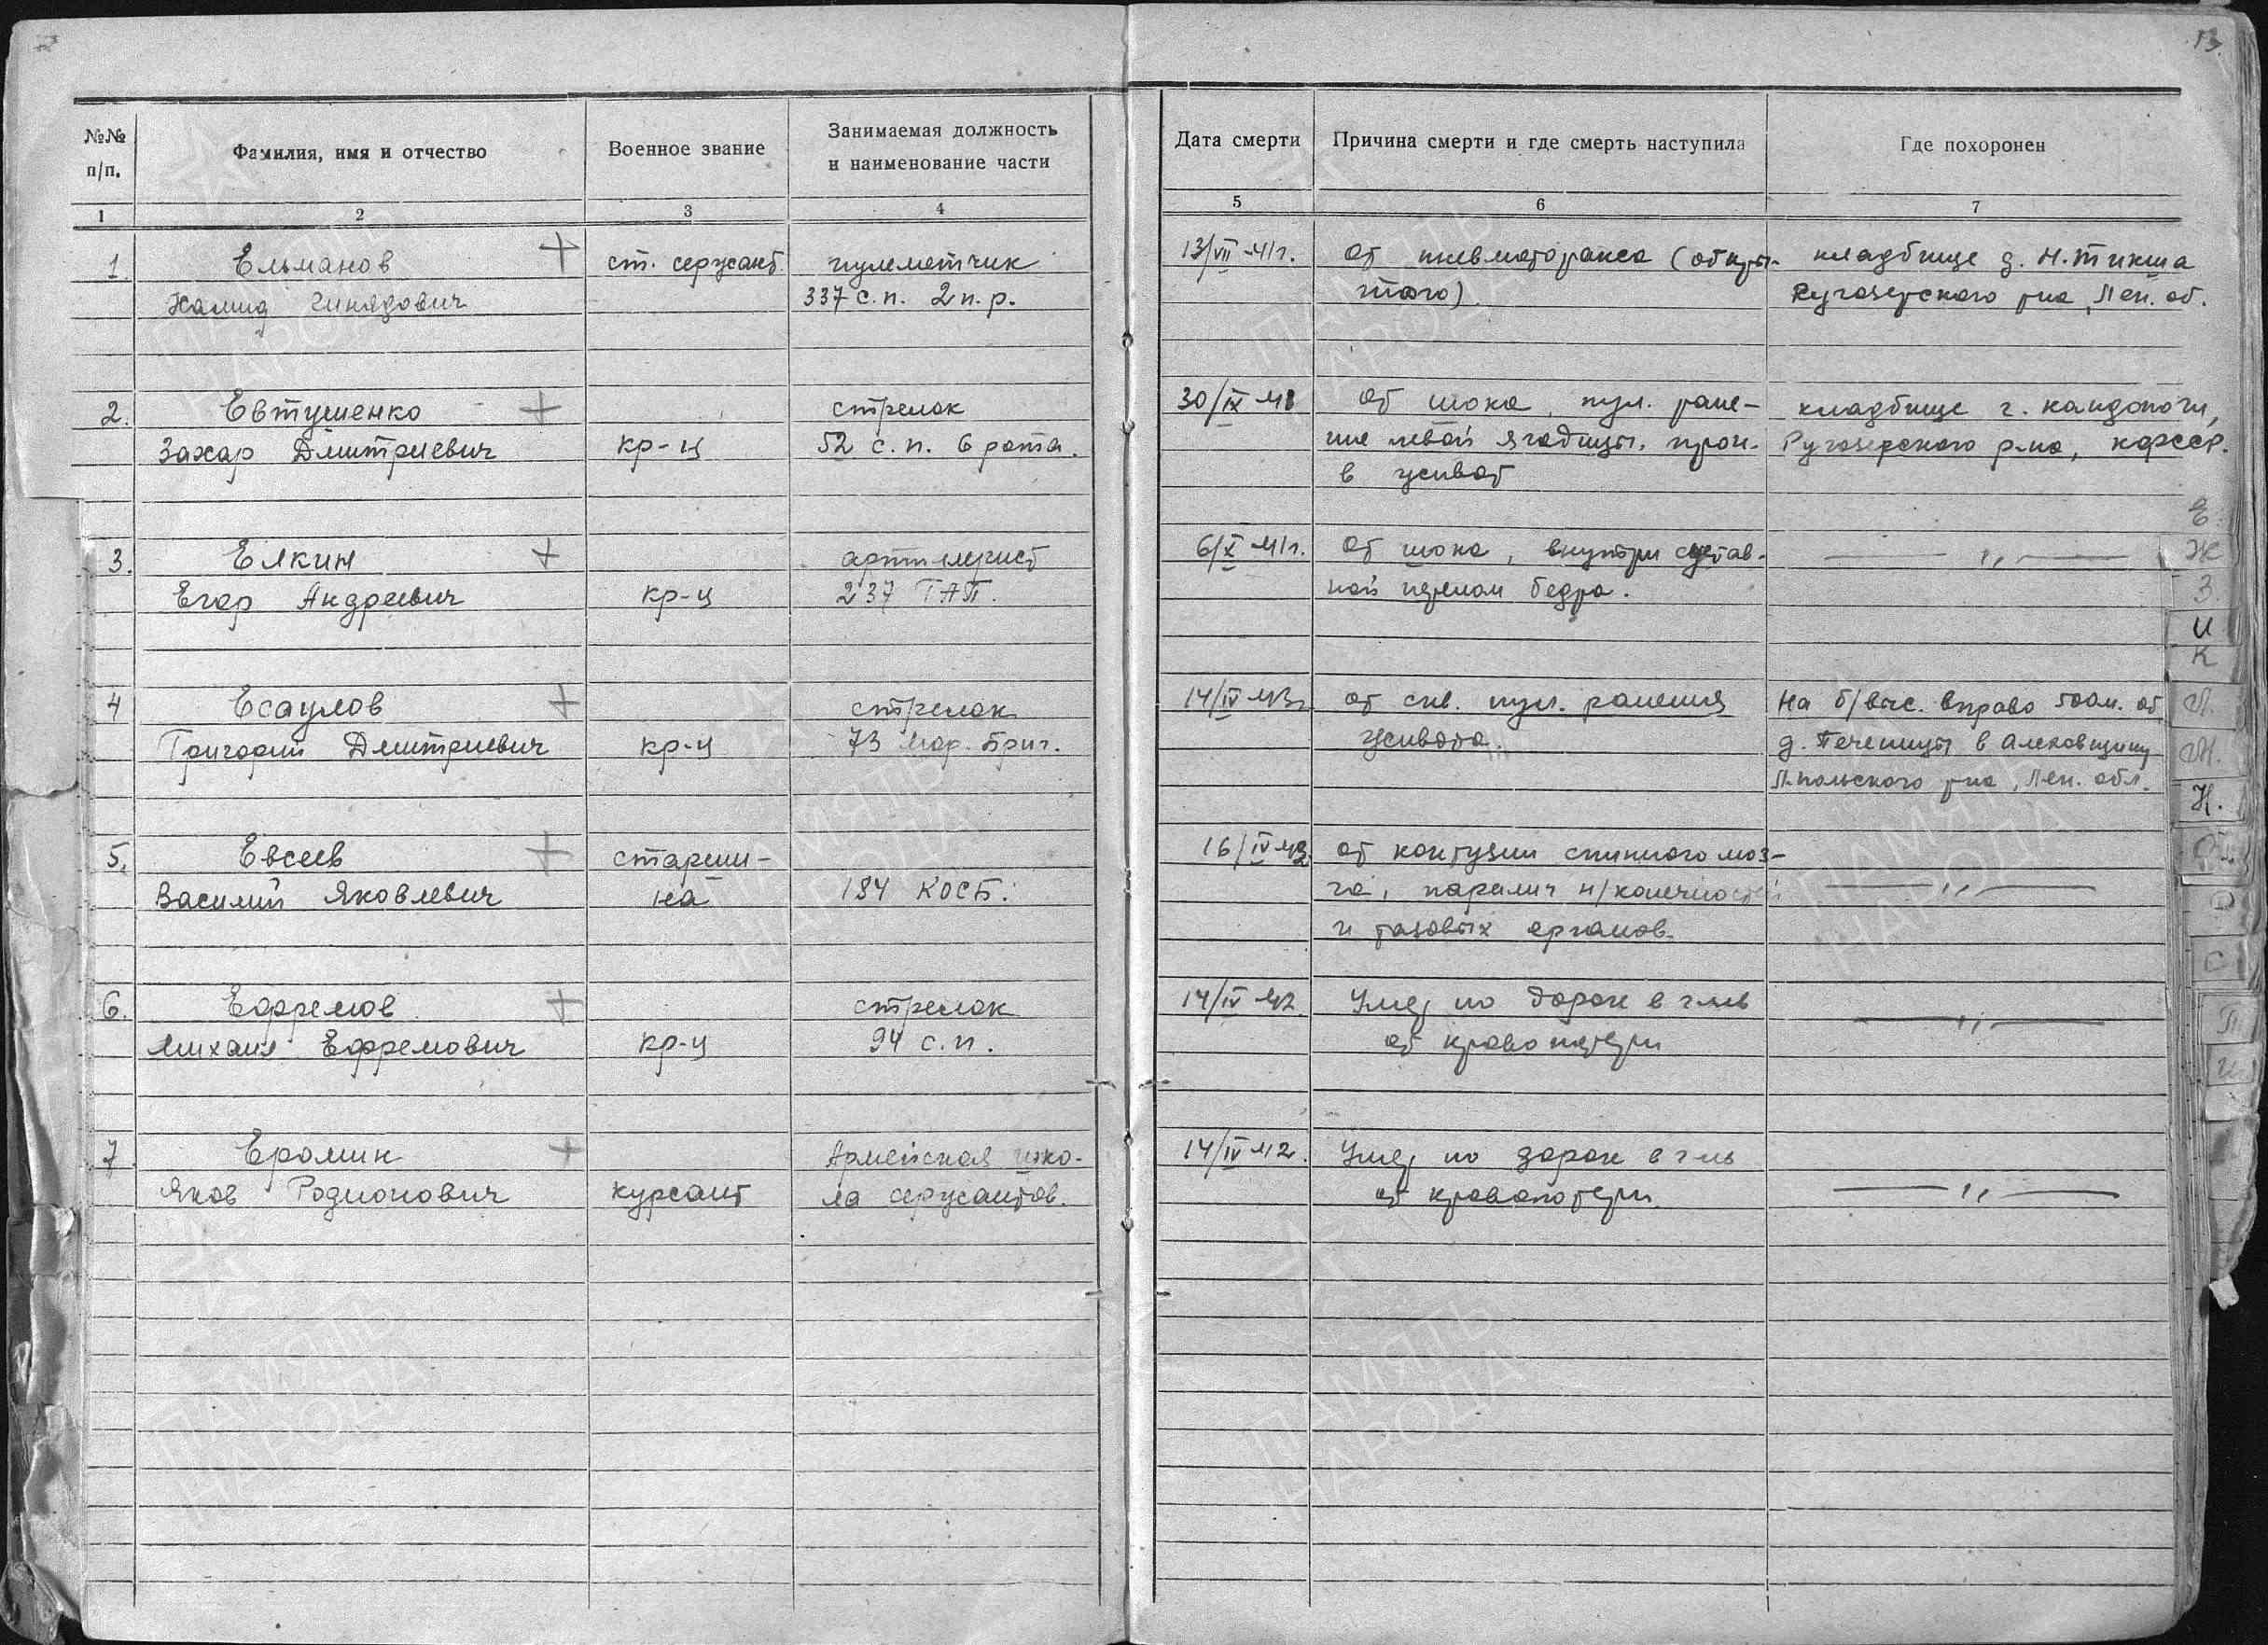 13.
№№ п/п.
Фамилия, имя и отчество
Военное звание
Занимаемая должность
и наименование части
Дата смерти
Причина смерти и где смерть наступила
Где похоронен
1 2 3 4 5 6 7
1. Ельманов + ст. сержант пулеметчик 13/VII-41г. от пневмоторакса (откры- кладбище д. Н. Тикша
337 с.п. 2 п.р. того). Ругозерского р-на, Лен. об.
2. Евтушенко + стрелок 30/IX 41 от шока, пул. ране- кладбище г. Кандопоги,
Захар Дмитриевич кр-ц 52 с.п. 6 рота. ние левой ягодицы, прон. Ругозерского р-на, КФССР.
в живот
3. Елкин + артиллерист 6/X 41г. от шока, внутри сустав- — „ —
Егор Андреевич кр-ц 237 ГАП. ной перелом бедра.
4 Есаулов + стрелок 14/IV 43г от скв. пул. ранения На б/выс. вправо 500м. от
Григорий Дмитриевич кр-ц 73 мор. бриг. живота. д. Печеницы в Алеховщину
Л.польского р-на, Лен. обл.
5. Евсеев + старши- 16/IV 42 от контузии спинного моз-
Василий Яковлевич на 184 КОСБ. га, паралич н/конечностей — „ —
и тазовых органов.
6. Ефремов + стрелок 14/IV 42 Умер по дороге в гль
Михаил Ефремович кр-ц 94 с.п. от кровопотери — „ —
7 Еромин + Армейская шко- 14/IV 42. Умер по дороге в гль
Яков Родионович курсант ла сержантов. от кровопотери — „ —
Е
Ж
З
И
К
Л.
М.
Н.
О.
Р
С
Т
ПАМЯТЬ
НАРОДА